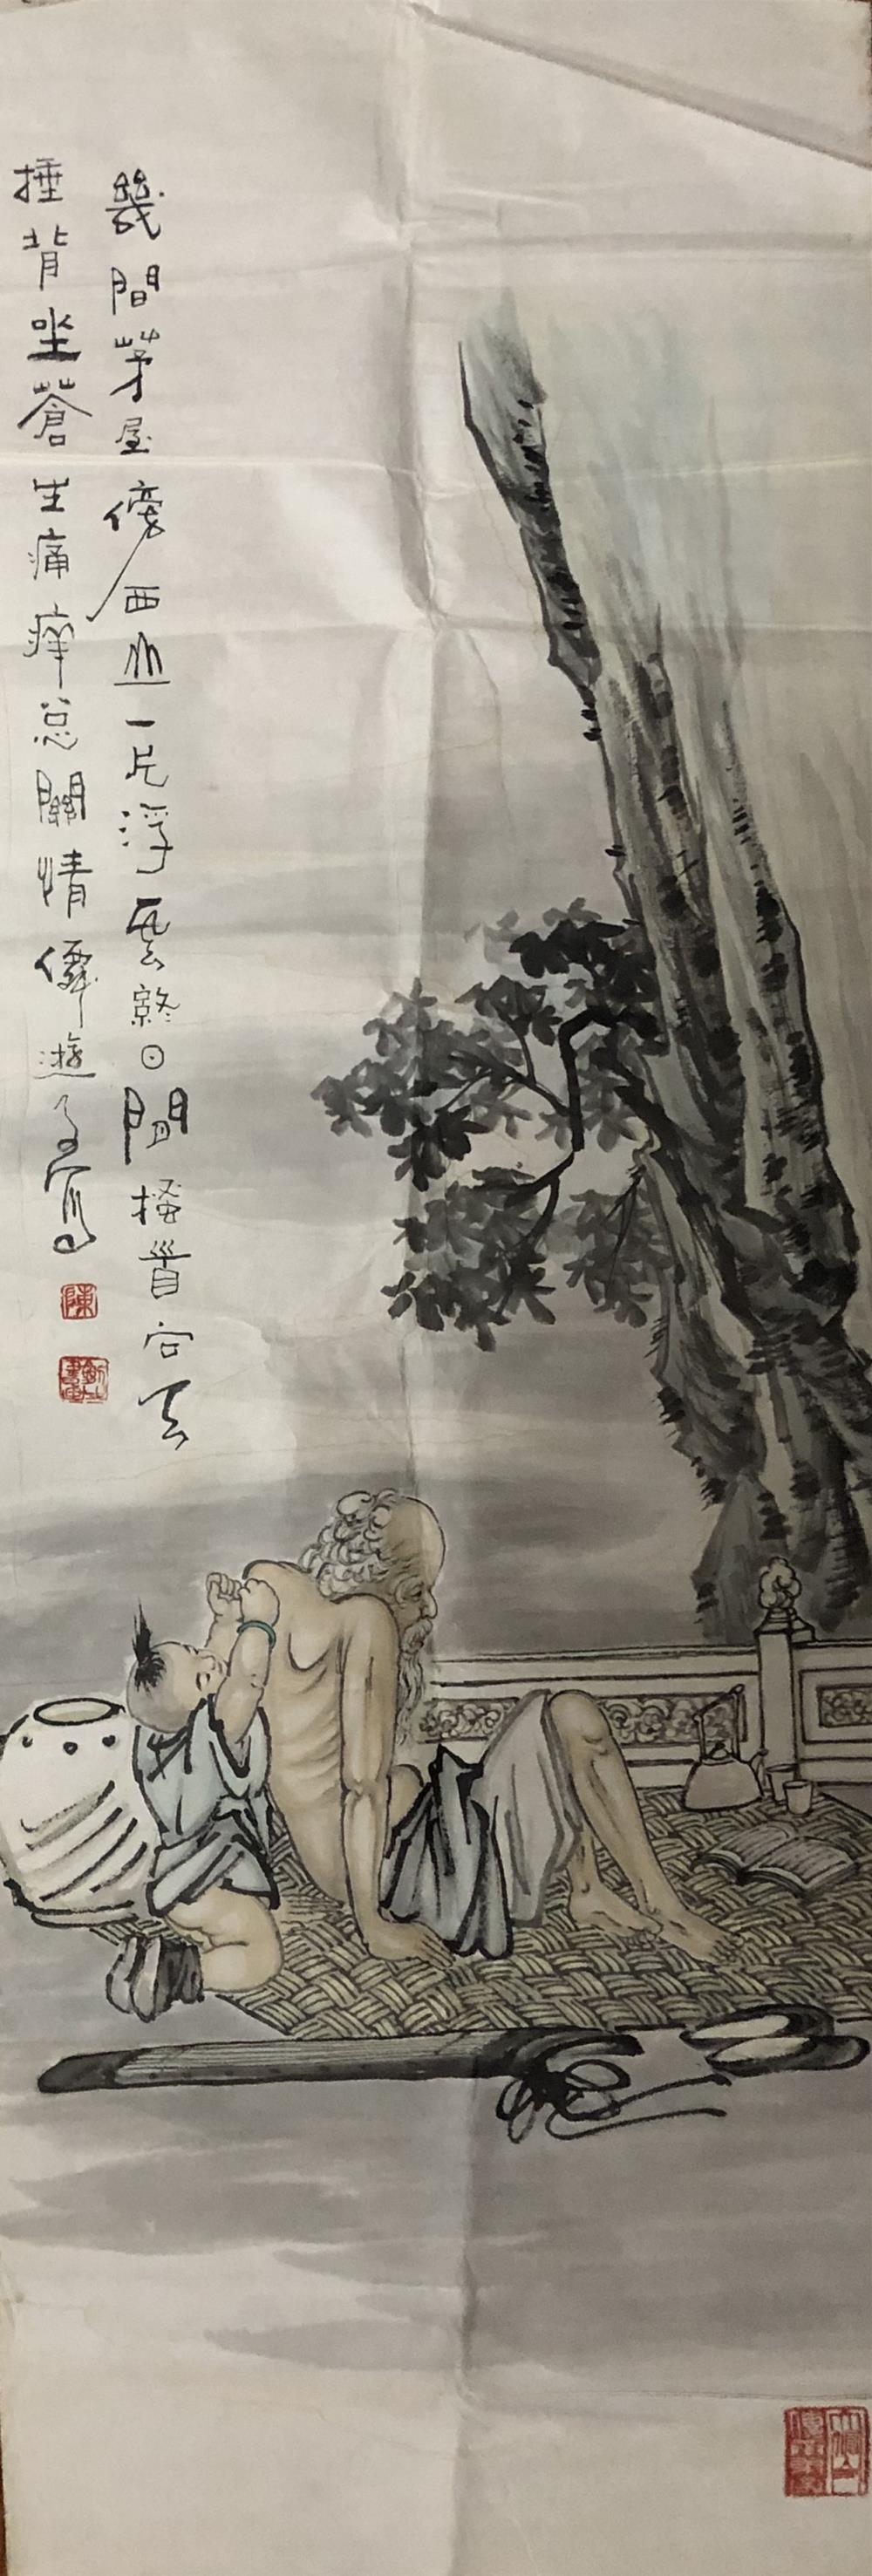 幾間茅屋傍西丘一片浮雲終日閒搔首向天
捶背坐蒼生痛癢总關情僊遊子寫
陳